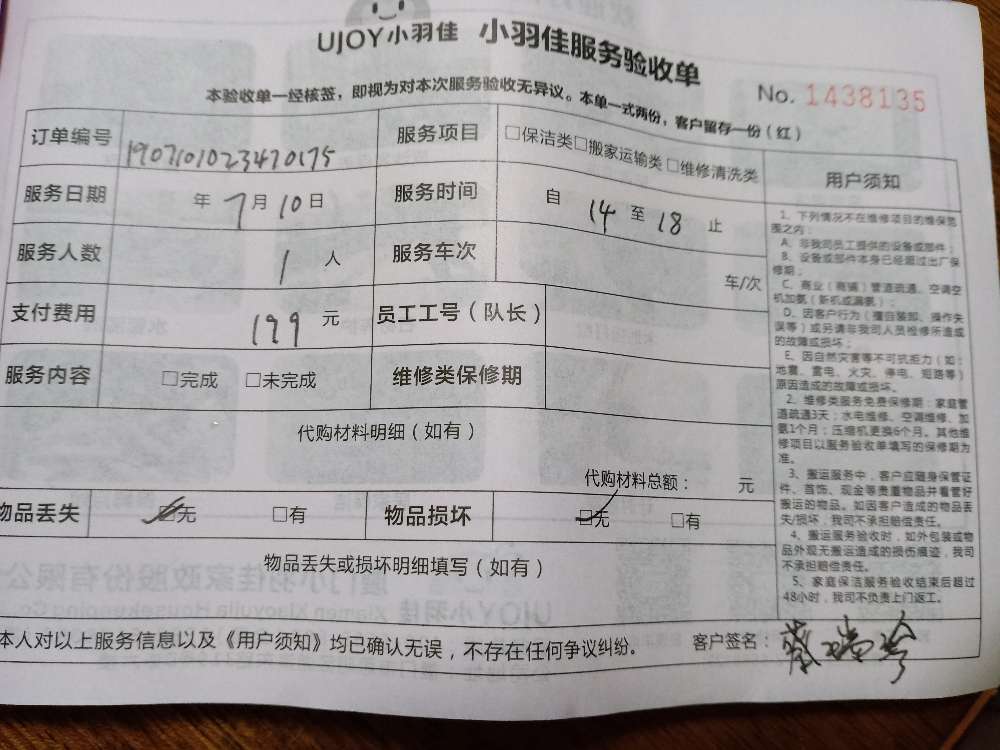 UJOY小羽佳 小羽佳服务验收单
No. 1438135
本验收单一经核签，即视为对本次服务验收无异议。本单一式两份，客户留存一份（红）
订单编号 1907101023470175 服务项目 □保洁类□搬家运输类□维修清洗类
服务日期 年 7月10日 服务时间 自 14 至 18 止
服务人数 1 人 服务车次 车/次
支付费用 199 元 员工工号（队长）
服务内容 □完成 □未完成 维修类保修期
代购材料明细（如有）
代购材料总额： 元
物品丢失 □无 □有 物品损坏 □无 □有
物品丢失或损坏明细填写（如有）
本人对以上服务信息以及《用户须知》均已确认无误，不存在任何争议纠纷。 客户签名：
用户须知
1、下列情况不在维修项目的维保范
围之内：
A、非我司员工提供的设备或部件；
B、设备或部件本身已经超过出厂保
修期；
C、商业（商铺）管道疏通、空调空
机加氨（新机或漏氨）；
D、因客户行为（擅自装卸、操作失
误等）或另请非我司人员检修所造成
的故障或损坏；
E、因自然灾害等不可抗拒力（如：
地震、雷电、火灾、停电、短路等）
原因造成的故障或损坏。
2、维修类服务免费保修期：家庭管
道疏通3天；水电维修、空调维修、加
氨1个月；压缩机更换6个月。其他维
修项目以服务验收单填写的保修期为
准。
3、搬运服务中，客户应随身保管证
件、首饰、现金等贵重物品并看管好
搬运的物品。如因客户造成的物品丢
失/损坏，我司不承担赔偿责任。
4、搬运服务验收时，如外包装或物
品外观无搬运造成的损伤痕迹，我司
不承担赔偿责任。
5、家庭保洁服务验收结束后超过
48小时，我司不负责上门返工。